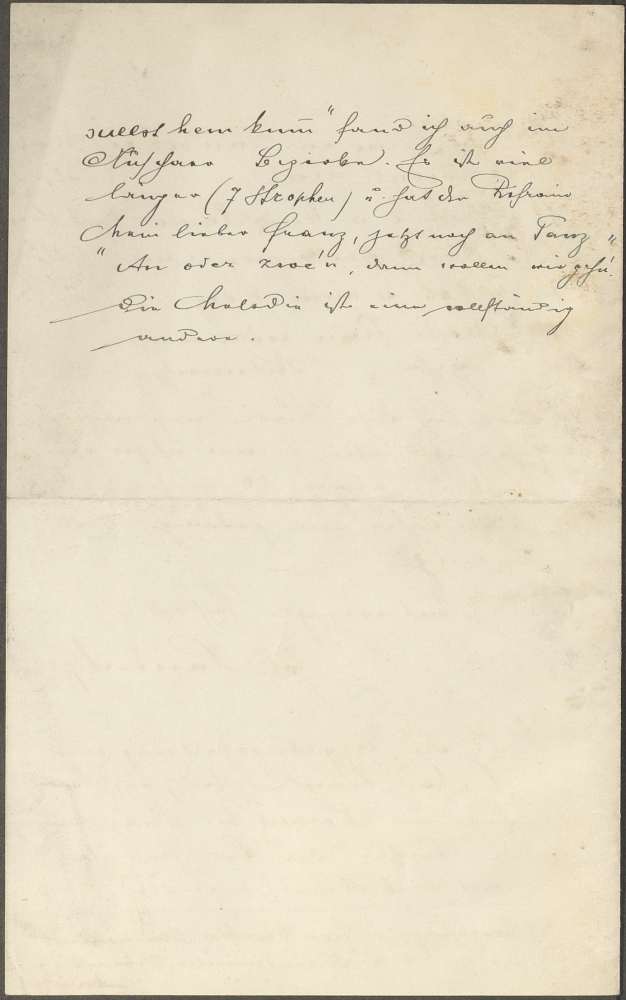 sullst hem kum̅" fand ich auch im
Auschaer Bezirke. Es ist viel
länger (7 Strophen) u. hat den Refrain
Mein lieber Franz, jetzt noch an Tanz "
" An oder zwe'n, dann wollen wir geh'n.
Die Melodie ist eine vollständig
andere.